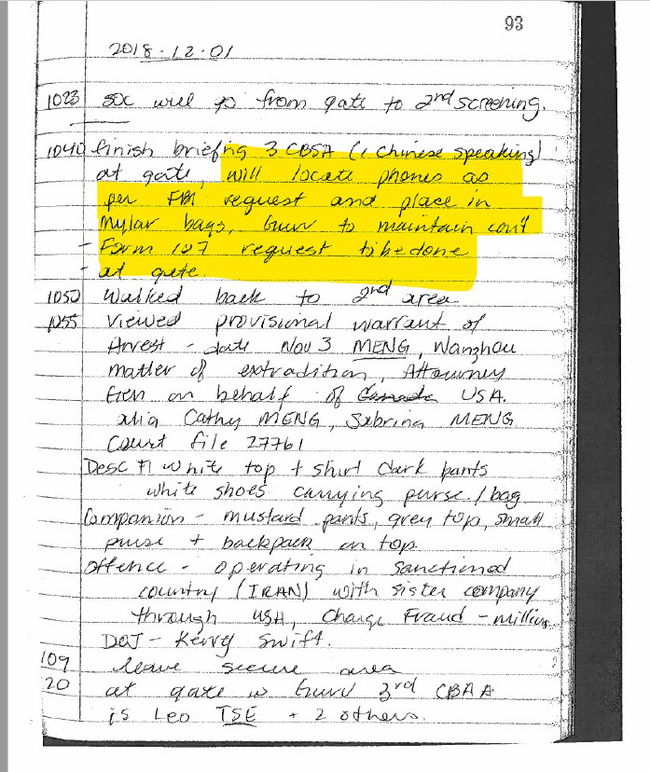 93
2018-12-01
1023 SOC will go from gate to 2nd screening.
1040 finish briefing 3 CBSA (1 Chinese speaking)
at gate, will locate phones as
per FBI request and place in
mylar bags, to maintain con't
- Form 127 request to be done
- at gate.
1050 Walked back to 2nd area
1055 Viewed provisional warrant of
Arrest - date Nov 3 MENG, Wanzhou
matter of extradition, Attorney
Gen on behalf of Canada USA.
alia Cathy MENG, Sabrina MENG
Court file 27761
Desc white top t shirt dark pants
white shoes carrying purse / bag
Companion - mustard pants, grey top, small
purse + backpack on top
Offence - operating in sanctioned
country (IRAN) with sister company
through USA, Charge Fraud - millions
DOJ - Kerry Swift.
109 leave secure area
20 at gate 3rd CBAA
is Leo TSE + 2 others.